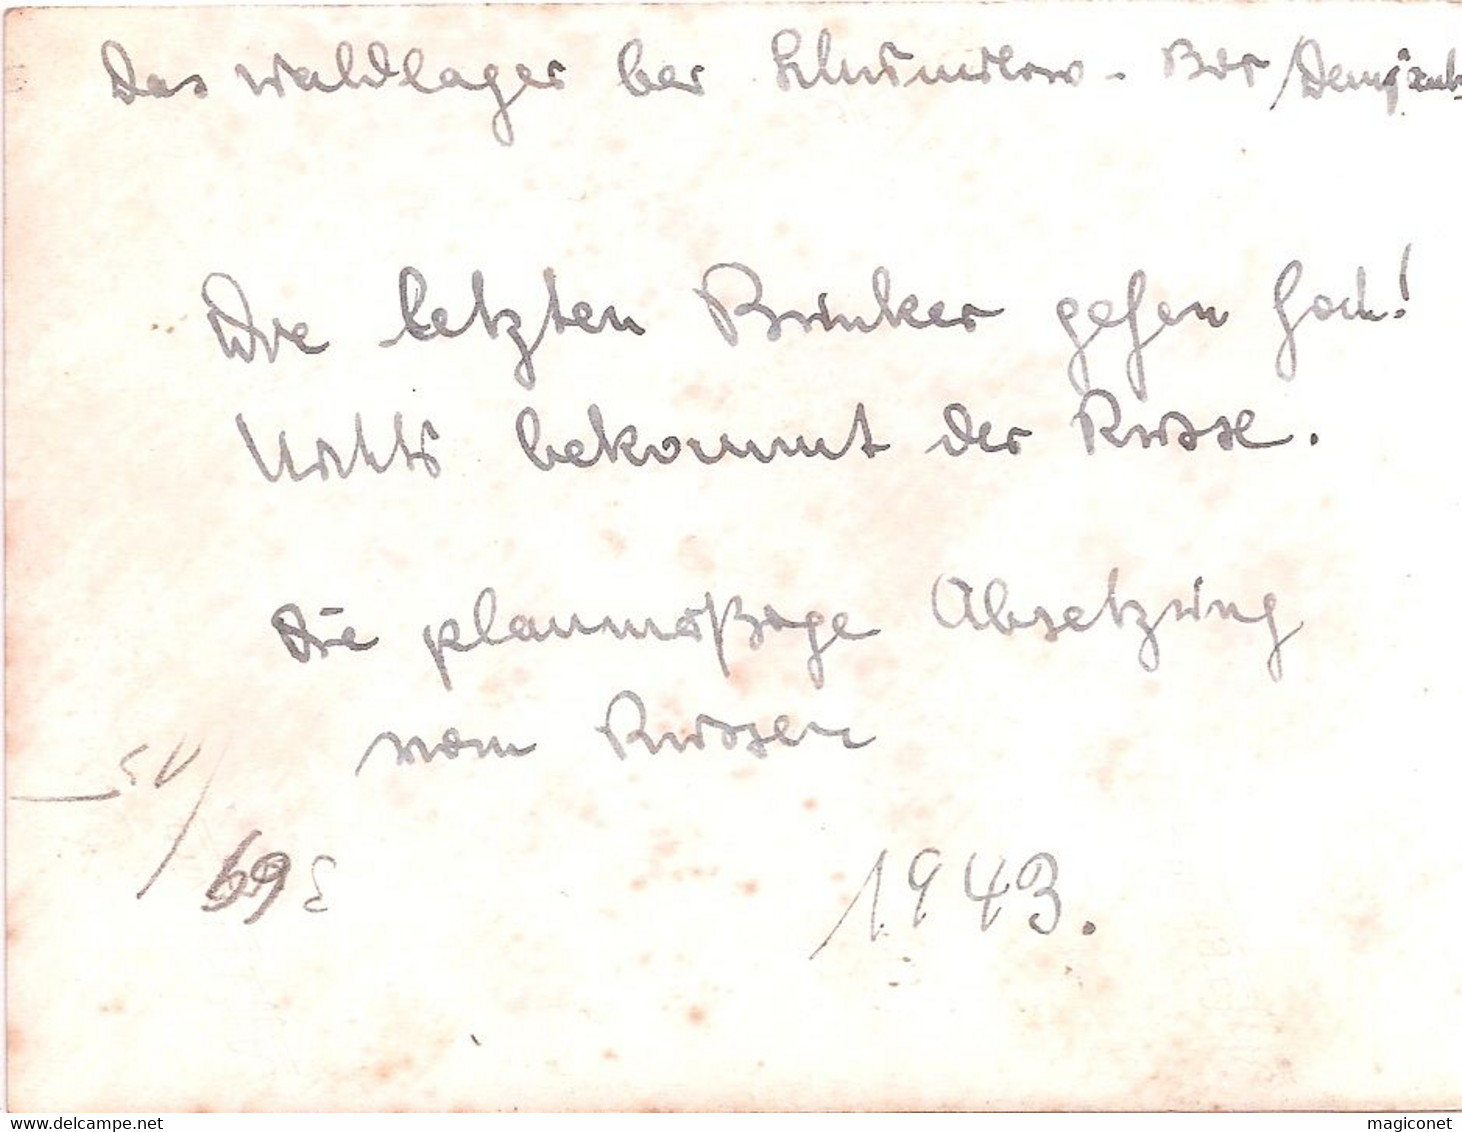 Das Waldlager bei Schumilow - Bor / Demjansk
Die letzten Bunker gehen hoch!
Nichts bekommt der Russe.
Die planmäßige Absetzung
vom Russen
69
1943.
delcampe.net
magiconet